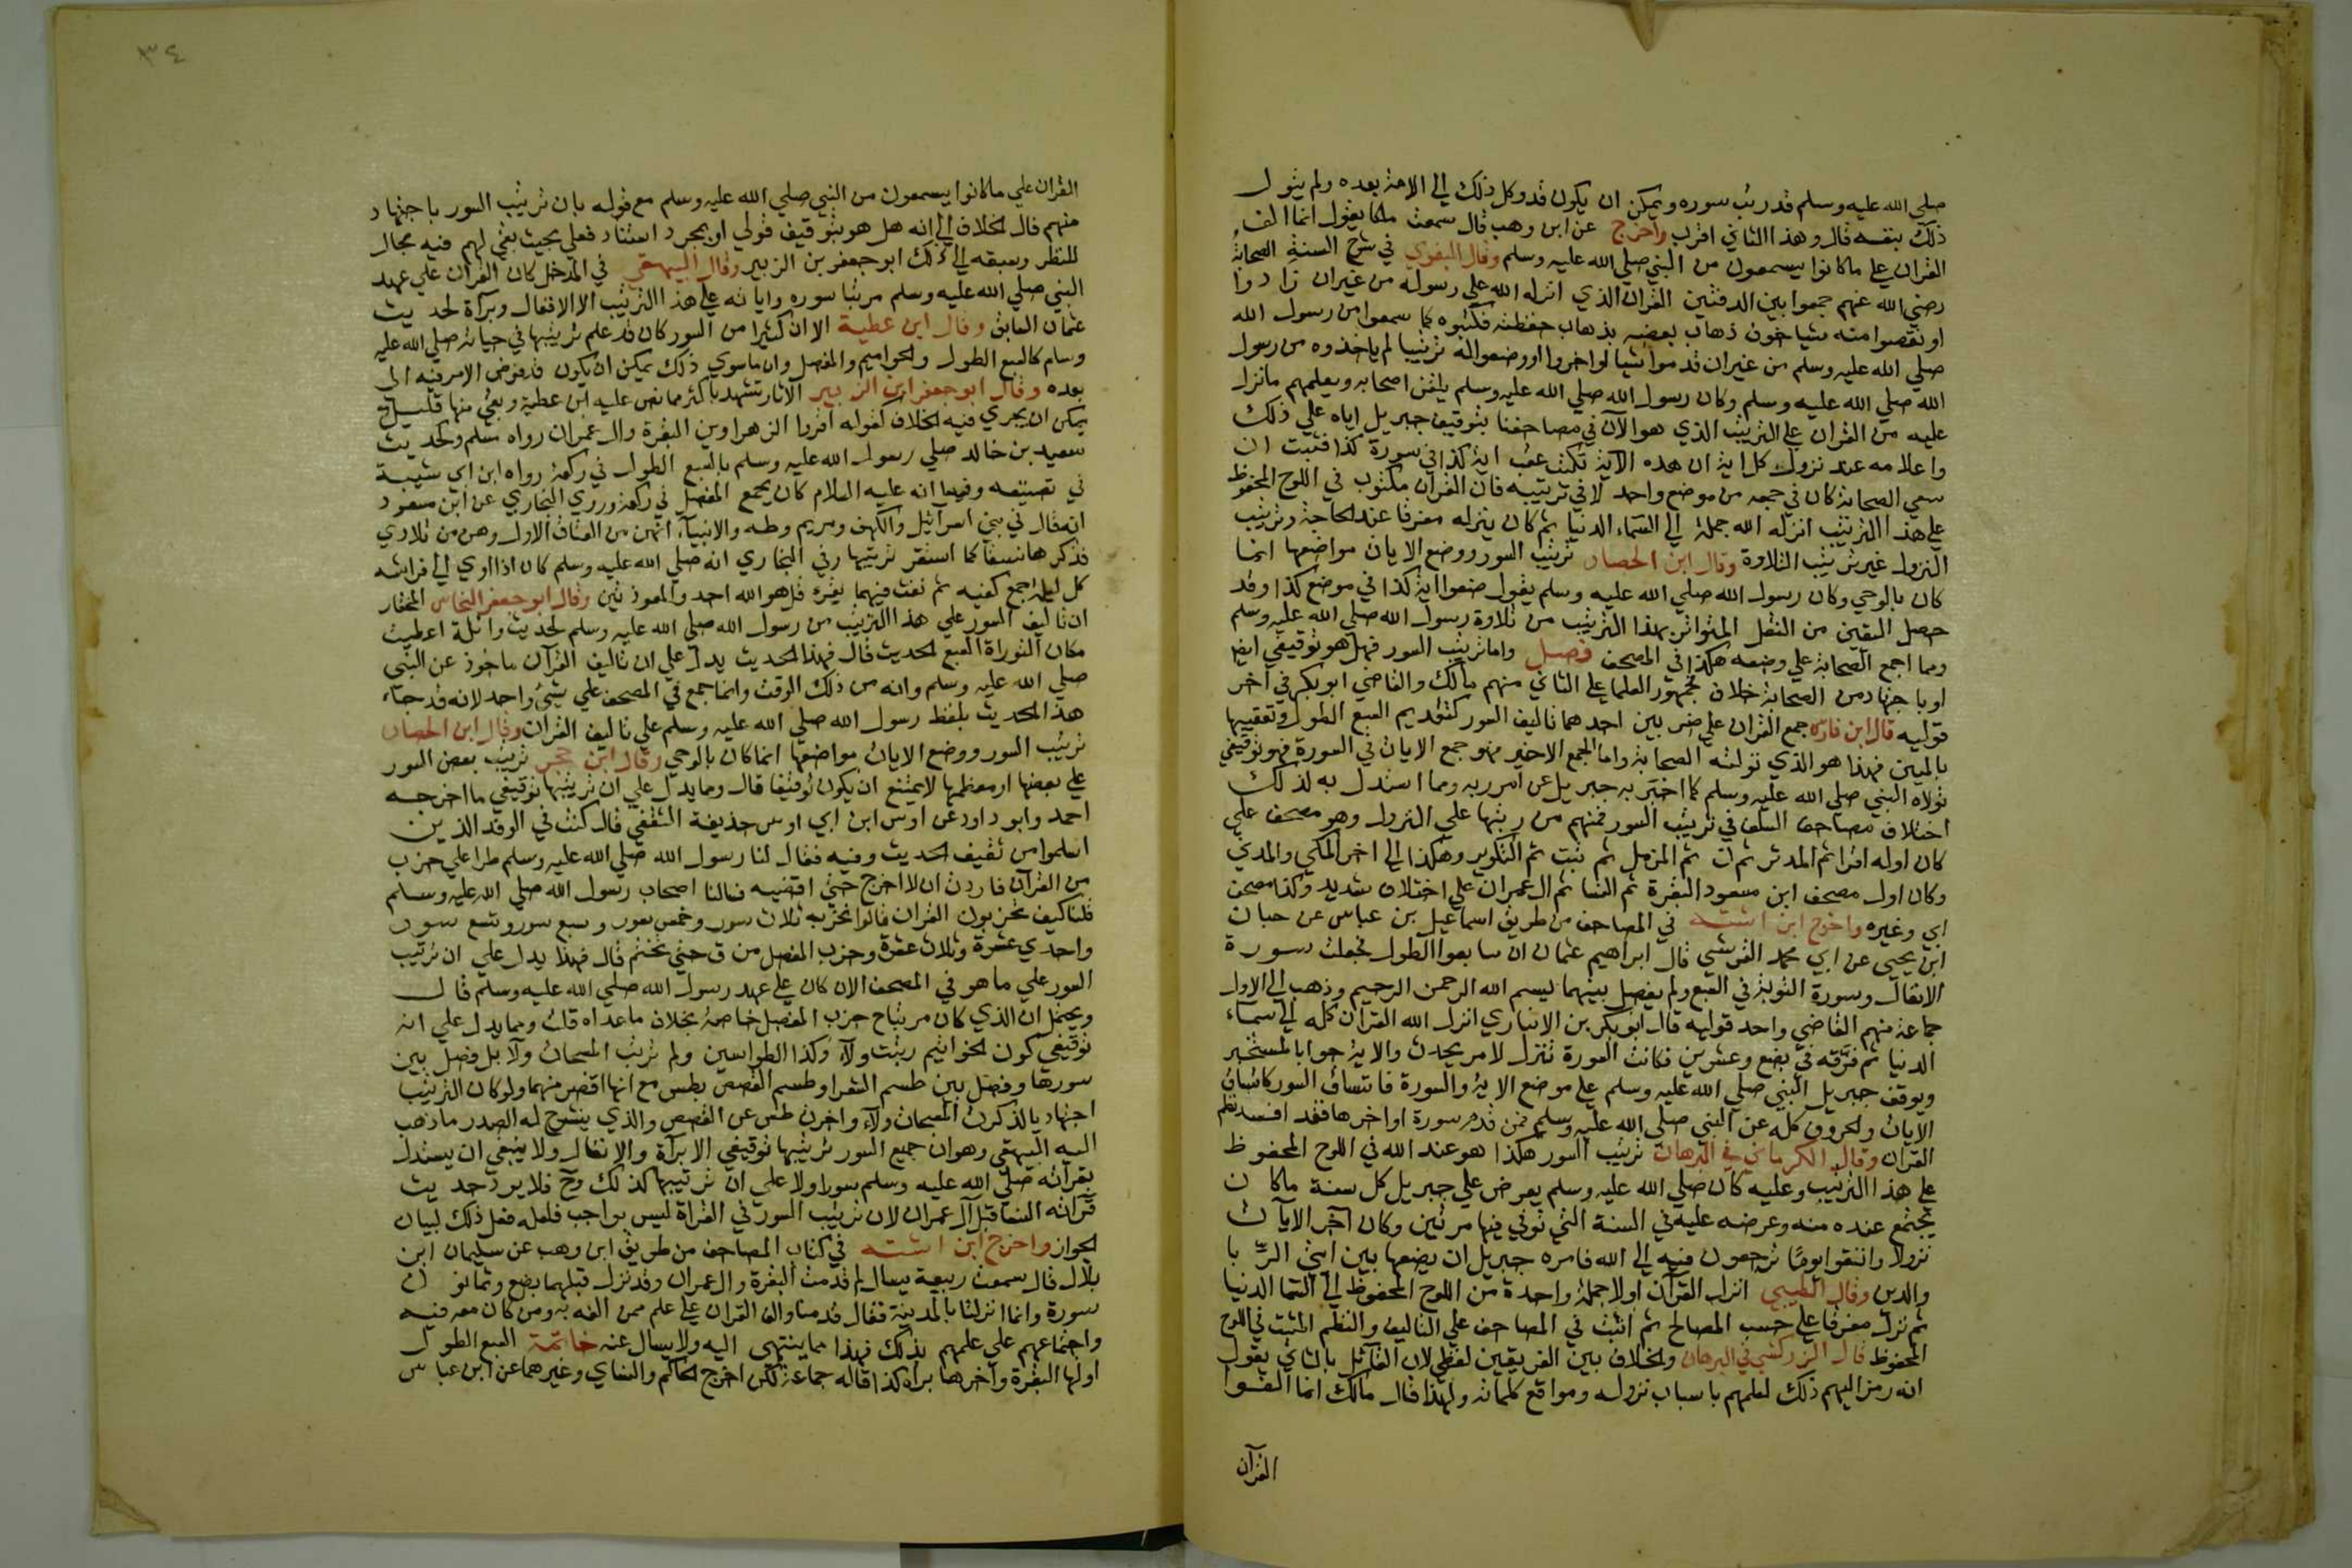 صلي الله عليه وسلم قد رتب سوره ويمكن ان يكون قد وكل ذلك الي الامة بعده ولم يتول
ذلك بنفسه قال وهذا الثاني اقرب واخرج عن ابن وهب قال سمعت مالكا يقول انما الف
القران علي ما كانوا يسمعون من النبي صلي الله عليه وسلم وقال البغوي في شرح السنة الصحابة
رضي الله عنهم جمعوا بين الدفتين القران الذي انزله الله علي رسوله من غير ان زادوا
او نقصوا منه شيا خوف ذهاب بعضه بذهاب حفظته فكتبوه كما سمعوا من رسول الله
صلي الله عليه وسلم من غير ان قدموا شيا او اخروا او وضعوا له ترتيبا لم ياخذوه من رسول
الله صلي الله عليه وسلم وكان رسول الله صلي الله عليه وسلم يلقن اصحابه ويعلمهم ما نزل
عليه من القران علي الترتيب الذي هو الآن في مصاحفنا بتوقيف جبريل اياه علي ذلك
واعلامه عند نزول كل اية ان هذه الآية تكتب عقب اية كذا في سورة كذا فثبت ان
سعي الصحابة كان في جمعه من موضع واحد لا في ترتيبه فان القران مكتوب في اللوح المحفوظ
علي هذا الترتيب انزله الله جملة الي السماء الدنيا ثم كان ينزله مفرقا عند الحاجة وترتيب
النزول غير ترتيب التلاوة وقال ابن الحصار ترتيب السور ووضع الايات مواضعها انما
كان بالوحي وكان رسول الله صلي الله عليه وسلم يقول ضعوا اية كذا في موضع كذا وقد
حصل اليقين من النقل المتواتر بهذا الترتيب من تلاوة رسول الله صلي الله عليه وسلم
ومما اجمع الصحابة علي وضعه هكذا في المصحف فصل واما ترتيب السور فهل هو توقيفي ايضا
او باجتهاد من الصحابة خلاف فجمهور العلما علي الثاني منهم مالك والقاضي ابو بكر في اخر
قوليه قال ابن فارس جمع القران علي ضربين احدهما تاليف السور كتقديم السبع الطول وتعقيبها
بالمئين فهذا هو الذي تولته الصحابة واما الجمع الاخير فهو جمع الايات في السورة فهو توقيفي
تولاه النبي صلي الله عليه وسلم كما اخبر به جبريل عن امر ربه ومما استدل به لذلك
اختلاف مصاحف السلف في ترتيب السور فمنهم من رتبها علي النزول وهو مصحف علي
كان اوله اقرا ثم المدثر ثم ن ثم المزمل ثم تبت ثم التكوير وهكذا الي اخر المكي والمدني
وكان اول مصحف ابن مسعود البقرة ثم النسا ثم ال عمران علي اختلاف شديد وكذا مصحف
ابي وغيره واخرج ابن اشته في المصاحف من طريق اسماعيل بن عباس عن حبان
ابن يحيي عن ابي محمد القرشي قال ابراهيم عثمان ان يتابعوا الطول فجعلت سورة
الانفال وسورة التوبة في السبع ولم يفصل بينهما ببسم الله الرحمن الرحيم وذهب الي الاول
جماعة منهم القاضي واحد قوليه قال ابو بكر بن الانباري انزل الله القران كله الي سماء
الدنيا ثم فرقه في بضع وعشرين فكانت السورة تنزل لامر يحدث والاية جوابا لمستخبر
ويوقف جبريل النبي صلي الله عليه وسلم علي موضع الاية والسورة فاتساق السور كاتساق
الايات والحروف كله عن النبي صلي الله عليه وسلم فمن قدم سورة او اخرها فقد افسد نظم
القران وقال الكرماني في البرهان ترتيب السور هكذا هو عند الله في اللوح المحفوظ
علي هذا الترتيب وعليه كان صلي الله عليه وسلم يعرض علي جبريل كل سنة ما كان
يجتمع عنده منه وعرضه عليه في السنة التي توفي فيها مرتين وكان آخر الآيات
نزولا واتقوا يوما ترجعون فيه الي الله فامره جبريل ان يضعها بين ايتي الربا
والدين وقال الطيبي انزل القرآن اولا جملة واحدة من اللوح المحفوظ الي السما الدنيا
ثم نزل مفرقا علي حسب المصالح ثم اثبت في المصاحف علي التاليف والنظم المثبت في اللوح
المحفوظ قال الزركشي في البرهان والخلاف بين الفريقين لفظي لان القائل بالثاني يقول
انه رمز اليهم ذلك لعلمهم باسباب نزوله ومواقع كلماته ولهذا قال مالك انما الفوا
القرآن
٣٤
القران علي ما كانوا يسمعون من النبي صلي الله عليه وسلم مع قوله بان ترتيب السور باجتهاد
منهم فال الخلاف الي انه هل هو بتوقيف قولي او بمجرد استناد فعلي بحيث بقي لهم فيه مجال
للنظر وسبقه الي ذلك ابو جعفر بن الزبير وقال البيهقي في المدخل كان القران علي عهد
النبي صلي الله عليه وسلم مرتبا سوره واياته علي هذا الترتيب الا الانفال وبراة لحديث
عثمان السابق وقال ابن عطية الا ان كثيرا من السور كان قد علم ترتيبها في حياته صلي الله عليه
وسلم كالسبع الطول والحواميم والمفصل وان ما سوي ذلك يمكن ان يكون فد فوض الامر فيه الى
بعده وقال ابو جعفر ابن الزبير الآثار تشهد باكثر مما نص عليه ابن عطية وبقي منها قليل
يمكن ان يجري فيه الخلاف كقوله اقروا الزهراوين البقرة وال عمران رواه مسلم وكحديث
سعيد بن خالد صلي رسول الله عليه وسلم بالسبع الطول في ركعة رواه ابن ابي شيبة
في تصنيفه وفيها انه عليه السلام كان يجمع المفصل في ركعة وروي البخاري عن ابن مسعود
انه قال في بني اسرائيل والكهف ومريم وطه والانبيآء انهن من العتاق الاول وهن من تلادي
فذكرها نسقا كما استقر ترتيبها وفي البخاري انه صلي الله عليه وسلم كان اذا اوي الي فراشه
كل ليلة جمع كفيه ثم نفث فيهما يقرء قل هو الله احد والمعوذتين وقال ابو جعفر النحاس المختار
ان تاليف السور علي هذا الترتيب من رسول الله صلي الله عليه وسلم لحديث واثلة اعطيت
مكان التوراة السبع الحديث قال فهذا الحديث يدل علي ان تاليف القرآن ماخوذ عن النبي
صلي الله عليه وسلم وانه من ذلك الوقت وانما جمع في المصحف علي شيئ واحد لانه قد جاء
هذا الحديث بلفظ رسول الله صلي الله عليه وسلم علي تاليف القران وقال ابن الحصار
ترتيب السور ووضع الايات مواضعها انما كان بالوحي وقال ابن حجر ترتيب بعض السور
علي بعضها او معظمها لا يمتنع ان يكون توقيفا قال ومما يدل علي ان ترتيبها توقيفي ما اخرجه
احمد وابو داود عن اوس ابن ابي اوس حذيفة الثقفي قال كنت في الوفد الذين
اسلموا من ثقيف الحديث وفيه فقال لنا رسول الله صلي الله عليه وسلم طرا علي حزب
من القرآن فاردت ان لا اخرج حتي اقضيه فسالنا اصحاب رسول الله صلي الله عليه وسلم
قلنا كيف تحزبون القران قالوا نحزبه ثلاث سور وخمس سور وسبع سور وتسع سور
واحدي عشرة وثلاث عشرة وحزب المفصل من ق حتي نختم قال فهذا يدل علي ان ترتيب
السور علي ما هو في المصحف الان كان علي عهد رسول الله صلي الله عليه وسلم قال
ويحتمل ان الذي كان مرتبا ح حزب المفصل خاصة بخلاف ما عداه قلت ومما يدل علي انه
توقيفي كون الحواميم رتبت ولآء وكذا الطواسين ولم ترتب المسبحات ولآ بل فصل بين
سورها وفصل بين طسم الشعرا وطسم القصص بطس مع انها اقصر منهما ولو كان الترتيب
اجتهاديا لذكرت المسبحات ولآء واخرت طس عن القصص والذي ينشرح له الصدر ما ذهب
اليه البيهقي وهو ان جميع السور ترتيبها توقيفي الا براة والانفال ولا ينبغي ان يستدل
بقرائته صلي الله عليه وسلم سورا ولا علي ان ترتيبها كذلك وح فلا يرد حديث
قرائه النسا قبل آل عمران لان ترتيب السور في القراة ليس بواجب فلعله فعل ذلك لبيان
الجواز واخرج ابن اشته في كتاب المصاحف من طريق ابن وهب عن سليمان ابن
بلال قال سمعت ربيعة يسال لم قدمت البقرة وال عمران وقد نزل قبلهما بضع وثمانون
سورة وانما انزلتا بالمدينة فقال قدمتا والف القران علي علم ممن الفه به ومن كان معه فيه
واجتماعهم علي علمهم بذلك فهذا مما ينتهي اليه ولا يسال عنه خاتمة السبع الطول
اولها البقرة وآخرها براه كذا قاله جماعة لكن اخرج الحاكم والنساي وغيرهما عن ابن عباس